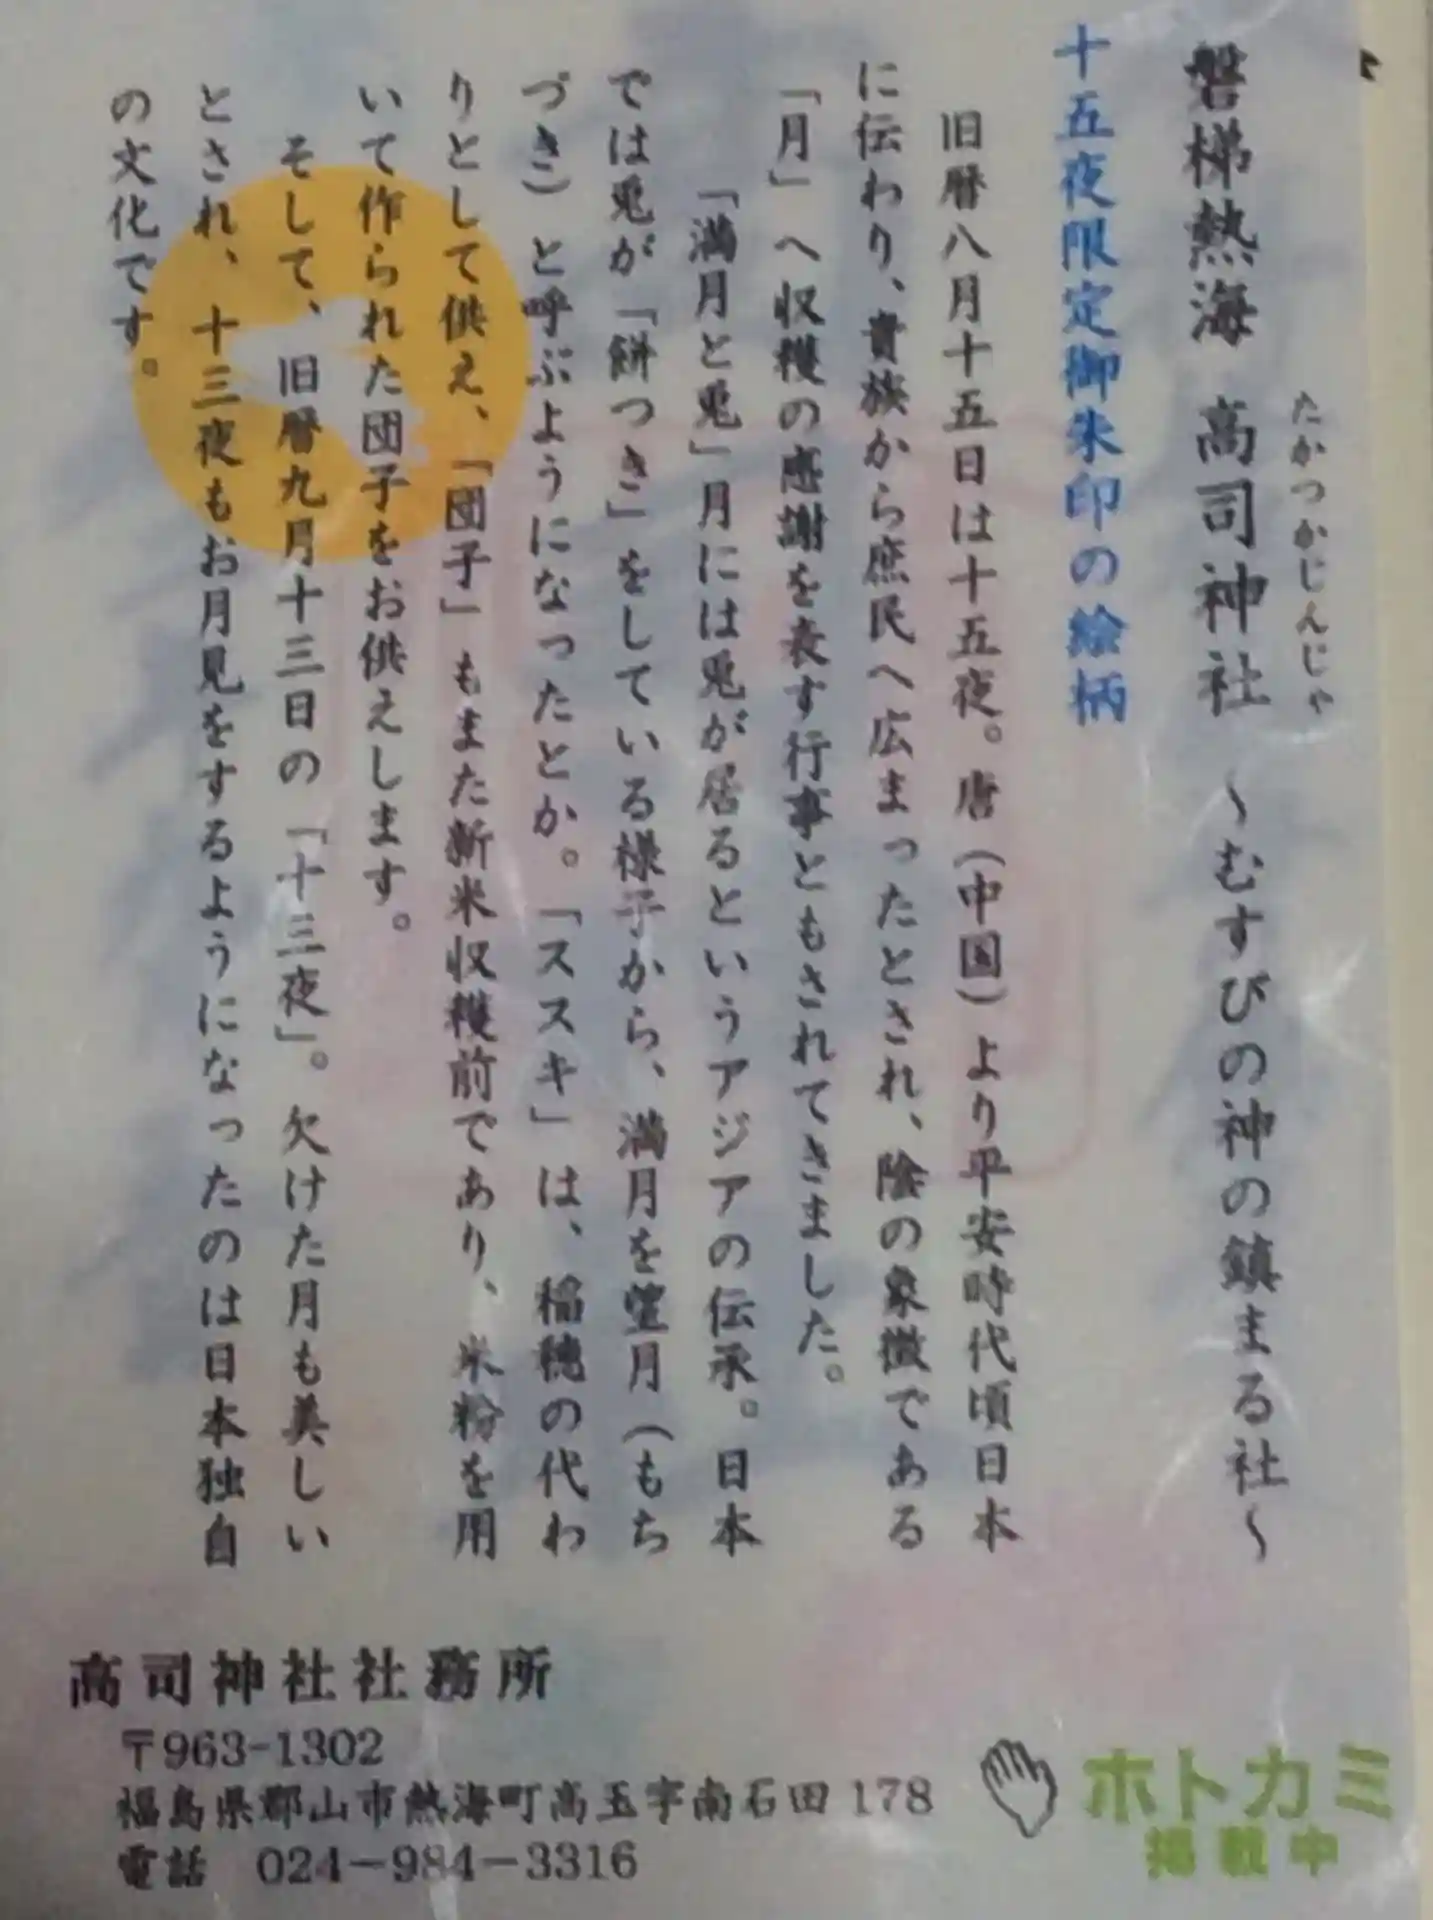 たかつかじんじゃ
磐梯熱海 高司神社 ～むすびの神の鎮まる社～
十五夜限定御朱印の絵柄
旧暦八月十五日は十五夜。唐（中国）より平安時代頃日本
に伝わり、貴族から庶民へ広まったとされ、陰の象徴である
「月」へ収穫の感謝を表す行事ともされてきました。
「満月と兎」月には兎が居るというアジアの伝承。日本
では兎が「餅つき」をしている様子から、満月を望月（もち
づき）と呼ぶようになったとか。「ススキ」は、稲穂の代わ
りとして供え、「団子」もまた新米収穫前であり、米粉を用
いて作られた団子をお供えします。
そして、旧暦九月十三日の「十三夜」。欠けた月も美しい
とされ、十三夜もお月見をするようになったのは日本独自
の文化です。
高司神社社務所
〒963-1302
福島県郡山市熱海町高玉字南石田178
電話 024-984-3316
ホトカミ
掲載中